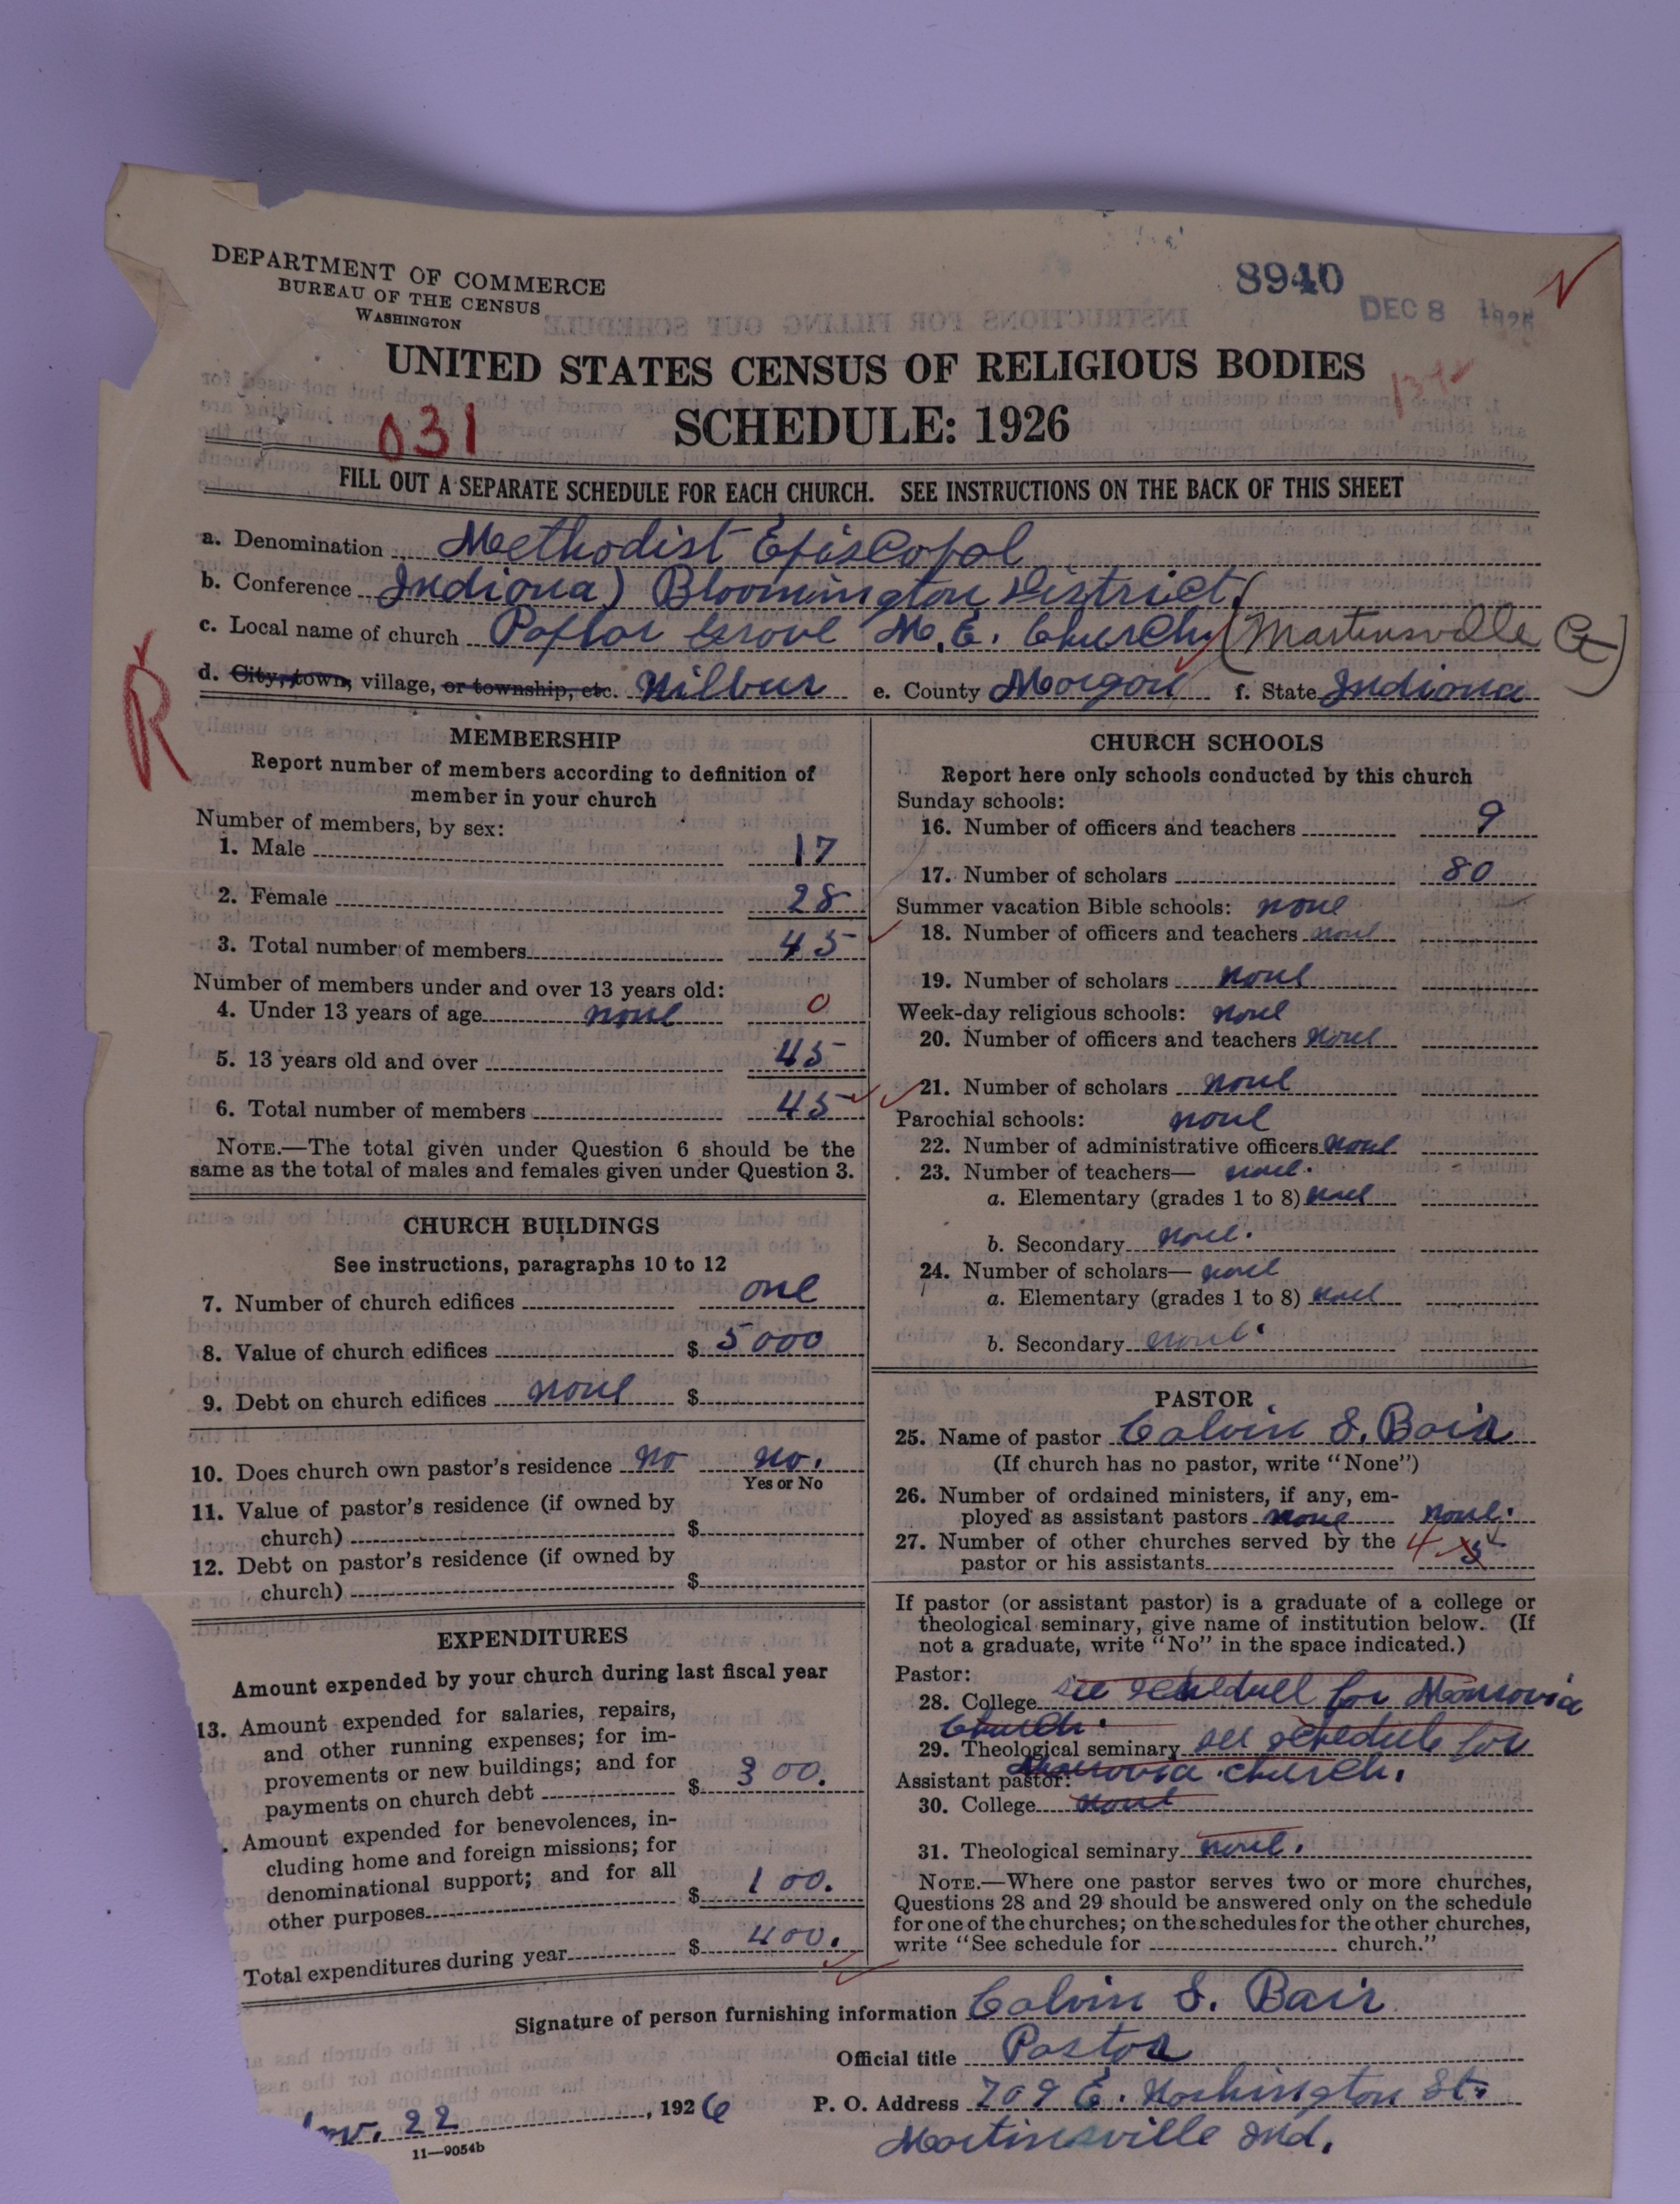 DEPARTMENT OF COMMERCE
BUREAU OF THE CENSUS
WASHINGTON
8940
DEC 8 1926
UNITED STATES CENSUS OF RELIGIOUS BODIES
SCHEDULE: 1926
031
FILL OUT A SEPARATE SCHEDULE FOR EACH CHURCH. SEE INSTRUCTIONS ON THE BACK OF THIS SHEET
a. Denomination Methodist Episcopal
b. Conference Indiana) Bloomington District(
c. Local name of church Poplar Grove M.E. Church (Martinsville Ct)
d. City, town, village, or township, etc. Wilbur e. County Morgan f. State Indiana
R
MEMBERSHIP
Report number of members according to definition of
member in your church
Number of members, by sex:
1. Male 17
2. Female 28
3. Total number of members 45
Number of members under and over 13 years old:
4. Under 13 years of age none 0
5. 13 years old and over 45
6. Total number of members 45
NOTE.—The total given under Question 6 should be the
same as the total of males and females given under Question 3.
CHURCH BUILDINGS
See instructions, paragraphs 10 to 12
7. Number of church edifices one
8. Value of church edifices $ 5000
9. Debt on church edifices none $
10. Does church own pastor's residence no no.
Yes or No
11. Value of pastor's residence (if owned by
church) $
12. Debt on pastor's residence (if owned by
church) $
EXPENDITURES
Amount expended by your church during last fiscal year
13. Amount expended for salaries, repairs,
and other running expenses; for im-
provements or new buildings; and for
payments on church debt $ 300.
. Amount expended for benevolences, in-
cluding home and foreign missions; for
denominational support; and for all
other purposes $ 100.
Total expenditures during year $ 400.
CHURCH SCHOOLS
Report here only schools conducted by this church
Sunday schools:
16. Number of officers and teachers 9
17. Number of scholars 80
Summer vacation Bible schools: none
18. Number of officers and teachers none
19. Number of scholars none
Week-day religious schools: none
20. Number of officers and teachers none
21. Number of scholars none
Parochial schools: none
22. Number of administrative officers none
23. Number of teachers— none.
a. Elementary (grades 1 to 8) none
b. Secondary none.
24. Number of scholars— none
a. Elementary (grades 1 to 8) none
b. Secondary none.
PASTOR
25. Name of pastor Calvin S. Bair
(If church has no pastor, write "None")
26. Number of ordained ministers, if any, em-
ployed as assistant pastors none none.
27. Number of other churches served by the
pastor or his assistants 4 5
If pastor (or assistant pastor) is a graduate of a college or
theological seminary, give name of institution below. (If
not a graduate, write "No" in the space indicated.)
Pastor:
28. College see schedule for Monrovia
Church.
29. Theological seminary see schedule for
Monrovia church.
Assistant pastor:
30. College none
31. Theological seminary none.
NOTE.—Where one pastor serves two or more churches,
Questions 28 and 29 should be answered only on the schedule
for one of the churches; on the schedules for the other churches,
write "See schedule for church."
Signature of person furnishing information Calvin S. Bair
Official title Pastor
Nov. 22, 1926 P. O. Address 709 E. Washington St.
Martinsville Ind.
11—9054b